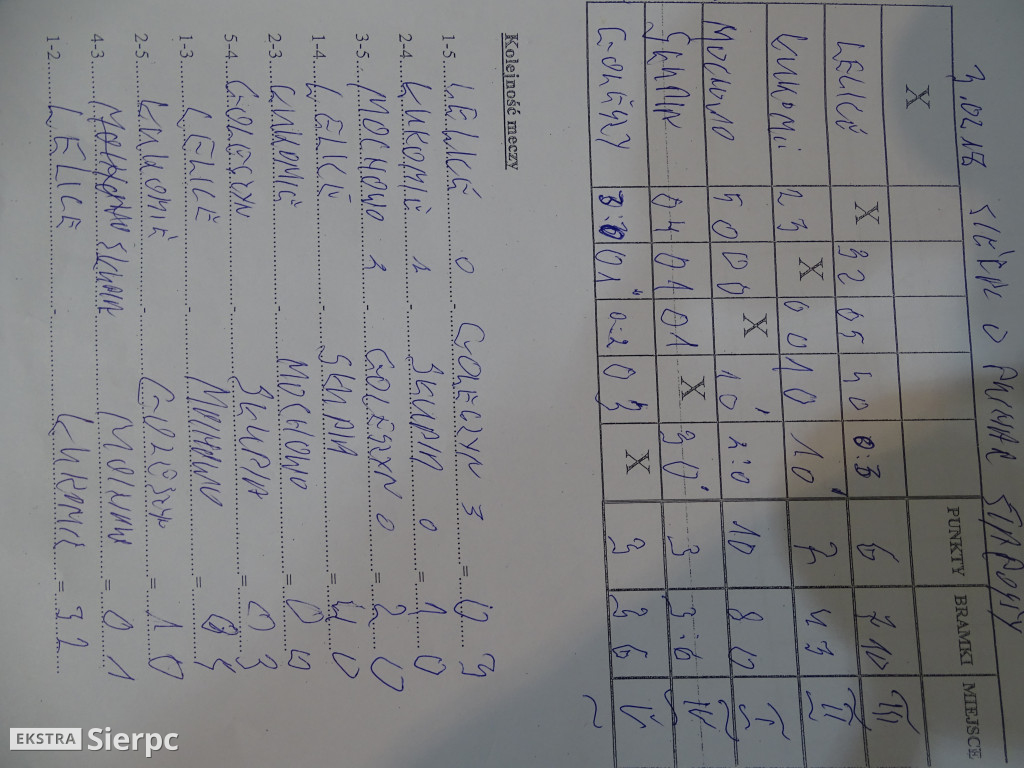 3.02.18 SIERPC
X PUNKTY BRAMKI MIEJSCE
LELICE X 3 2 0 5 4 0 0:3 6 7 10 III
LUKOMIE 2 3 X 0 0 1 0 1 0 7 4 3 II
MOCHOWO 5 0 0 0 X 1 0 2:0 10 8 0 I
0 4 0 1 0 1 X 3 0 3 3:6
3:0 0 1 0:2 0 3 X 3 3 6
Kolejność meczy
1-5 LELICE 0 - GOLESZYN 3 = 0 3
2-4 LUKOMIE 1 - 0 = 1 0
3-5 MOCHOWO 2 - GOLESZYN 0 = 2 0
1-4 LELICE - = 4 0
2-3 LUKOMIE - MOCHOWO = 0 0
5-4 GOLESZYN - = 0 3
1-3 LELICE - MOCHOWO = 0 5
2-5 LUKOMIE - GOLESZYN = 1 0
4-3 - = 0 1
1-2 LELICE - LUKOMIE = 3 2
EKSTRA Sierpc